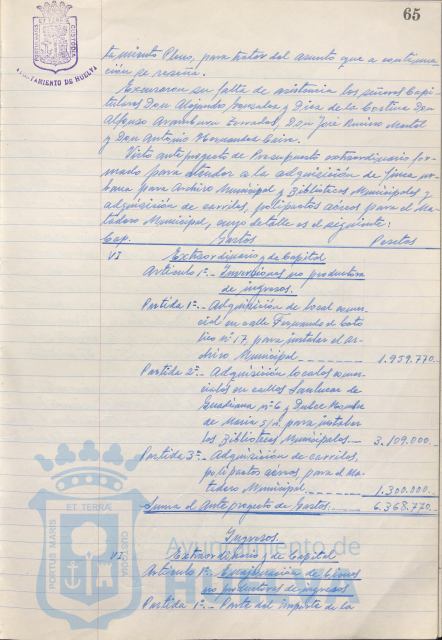 65
AYUNTAMIENTO DE HUELVA
tamiento Pleno, para tratar del asunto que a continua-
ción se reseña.
Excusaron su falta de asistencia los señores Capi-
tulares Don Alejandro González y Díaz de la Cortina Don
Alfonso Aramburu Terrades, Don José
y Don Antonio Hernández
Visto anteproyecto de Presupuesto extraordinario for-
mado para atender a la adquisición de finca ur-
bana para Archivo Municipal y Bibliotecas Municipales y
adquisición de carriles, polipastos aéreos para el Ma-
tadero Municipal, cuyo detalle es el siguiente:
Cap. Gastos Pesetas
VI Extraordinario y de Capital
Artículo 1º.- Inversiones no productoras
de ingresos.
Partida 1ª.- Adquisición de local comer-
cial en calle Fernando el Cató-
lico nº 17, para instalar el Ar-
chivo Municipal 1.959.770.-
Partida 2ª.- Adquisición locales comer-
ciales en calles Sanlucar de
Guadiana nº 6 y Dulce Nombre
de María 5/2. para instalar
las Bibliotecas Municipales. 3.109.000.-
Partida 3ª.- Adquisición de carriles,
polipastos aéreos, para el Ma-
tadero Municipal 1.300.000.-
Suma el Anteproyecto de Gastos. 6.368.770.-
Ingresos.
VI. Extraordinario y de Capital
Artículo 1º.- Enajenación de bienes
no productores de ingresos
Partida 1ª.- Parte del importe de la
PORTUS MARIS ET TERRAE CUSTODIA
Ayuntamiento de
HUELVA